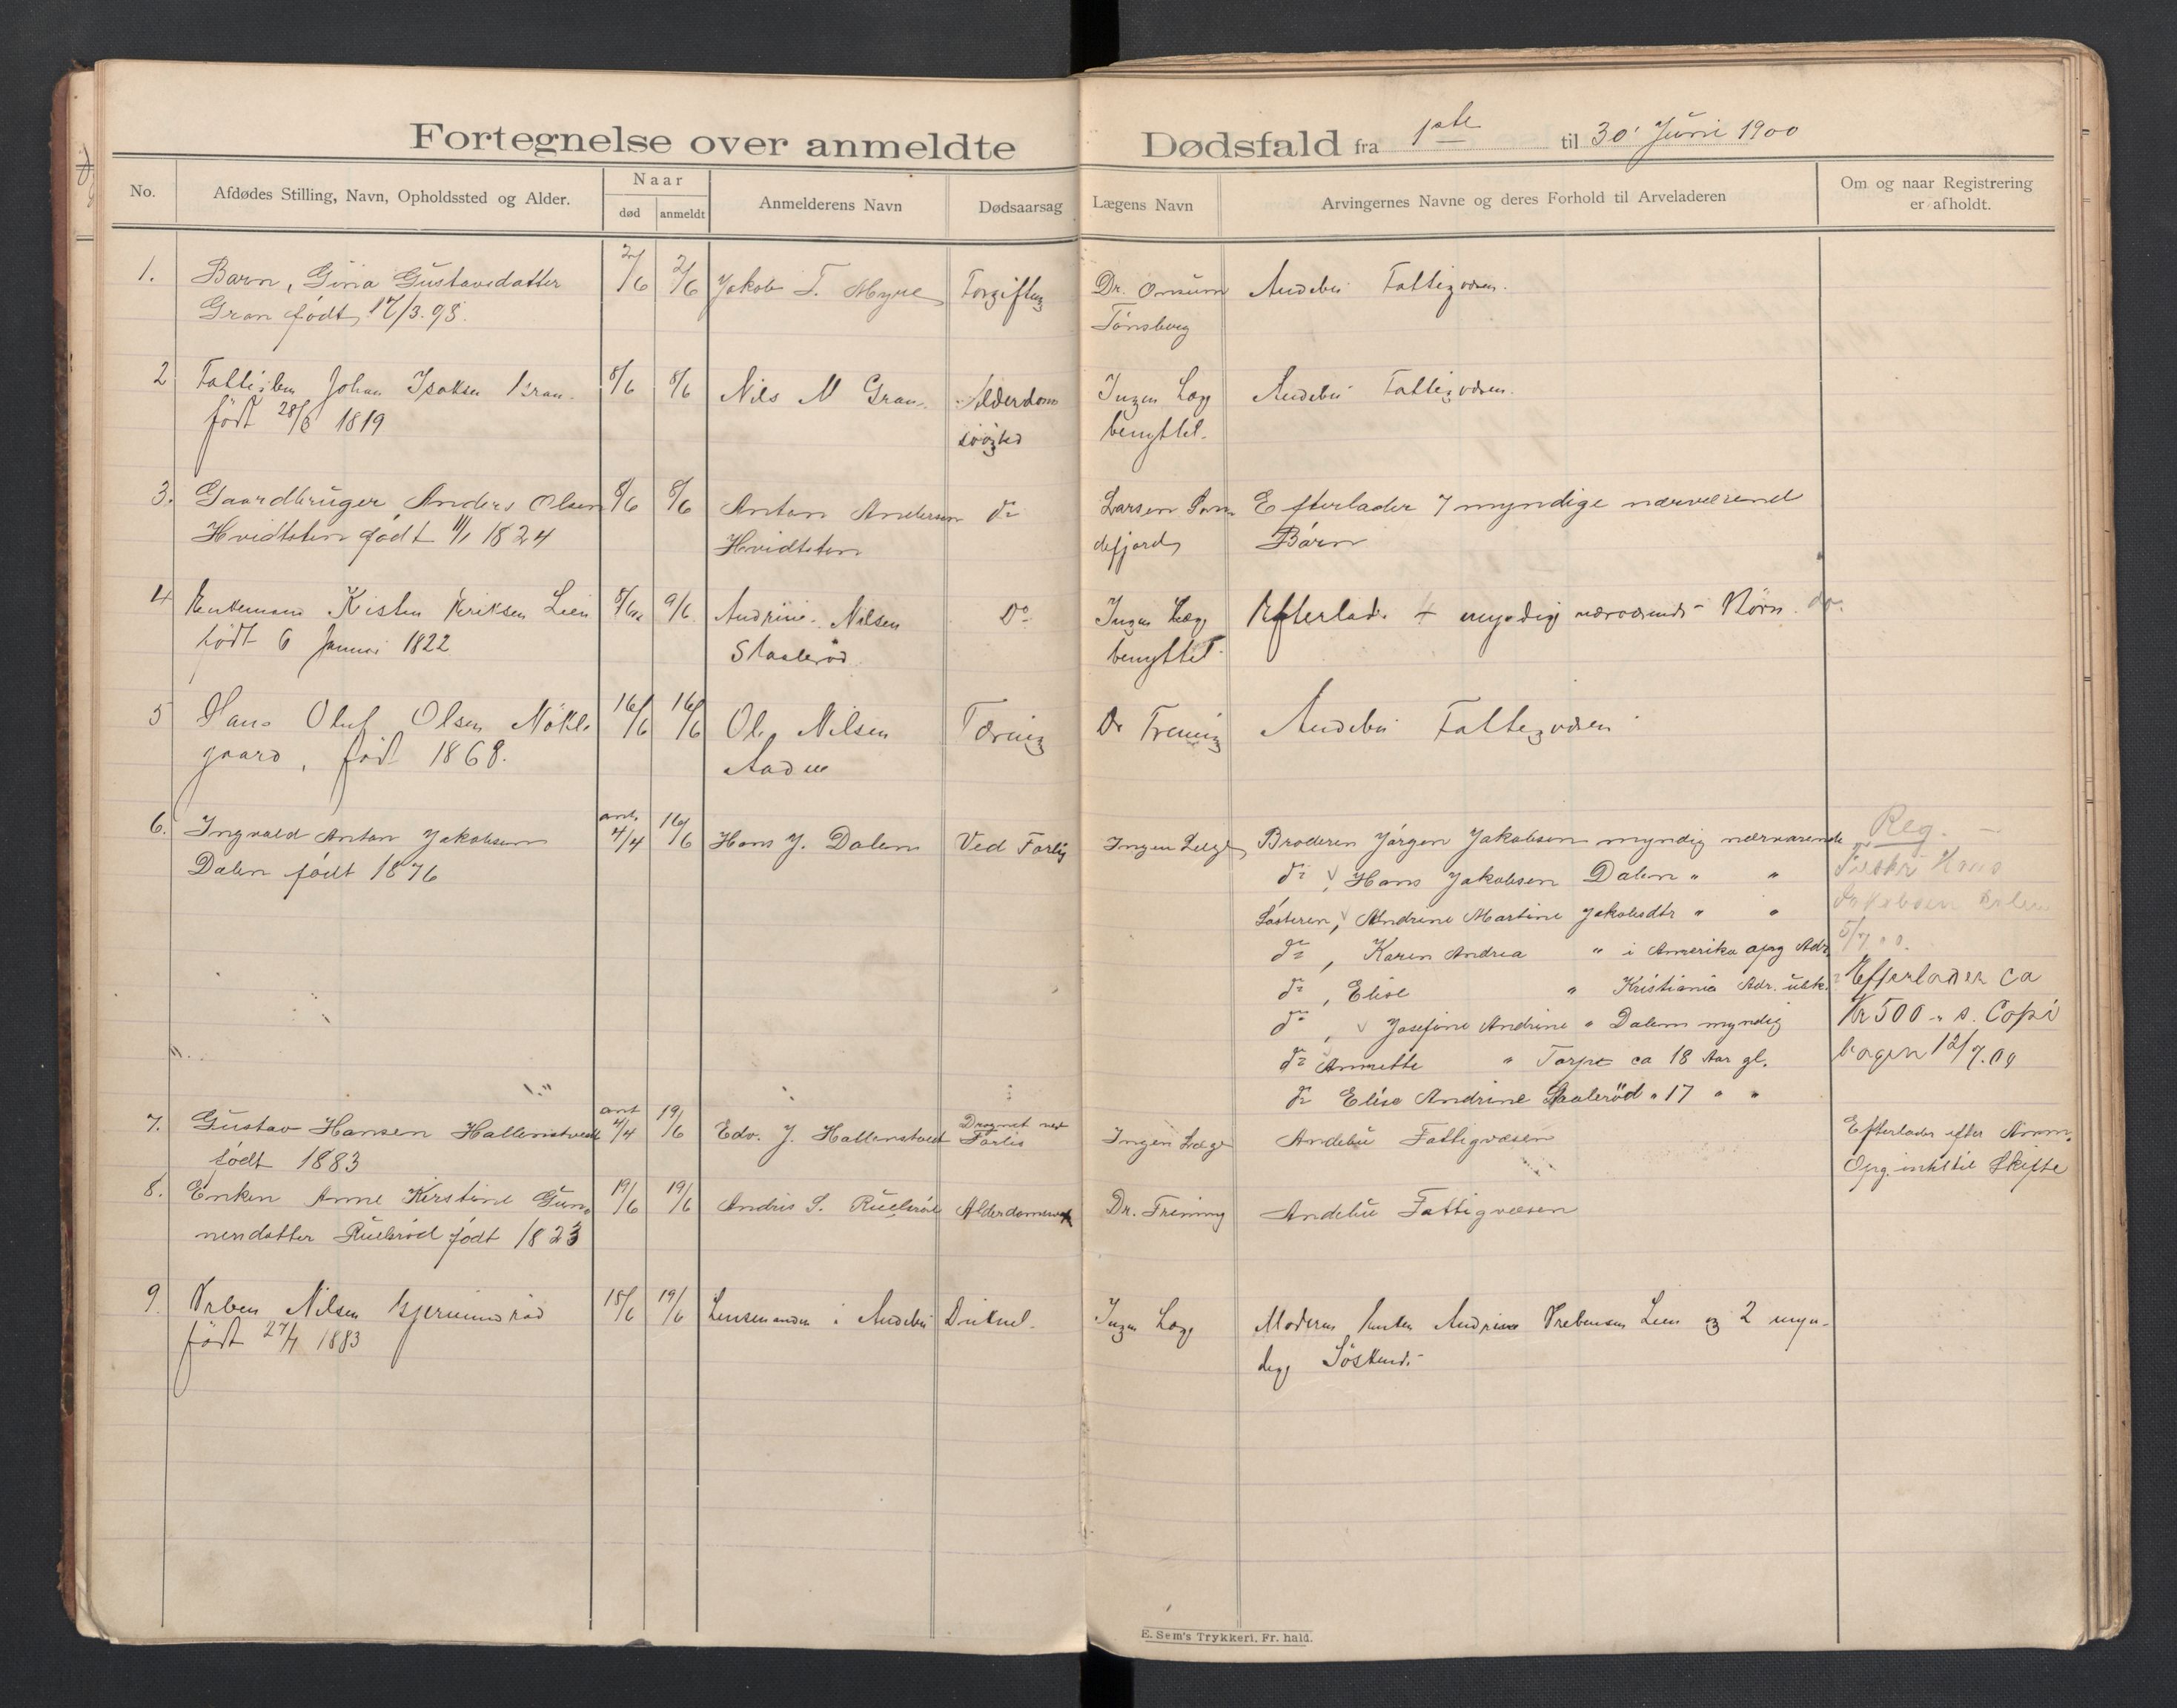 Fortegnelse over anmeldte Dødsfald fra 1ste til 30' Juni 1900
No.
Afdødes Stilling, Navn, Opholdssted og Alder.
Naar
død
anmeldt
Anmelderens Navn
Dødsaarsag
Lægens Navn
Arvingernes Navne og deres Forhold til Arveladeren
Om og naar Registrering
er afholdt.
1. Barn, Gina Gustavsdatter 2/6 2/6 Jakob T. Myre Forgiftng Dr. Onsum Andebu Fattigvæsen.
Gran født 17/3.98. Tönsberg
2 Fattiglem Johan Isaksen Gran. 8/6 8/6 Nils N Gran. Alderdoms Ingen Læge Andebu Fattigvæsen.
født 28/8 1819 benyttet.
3. Gaardbruger Anders Olsen 8/6 8/6 Anton Andersen do Larsen San Efterlader 7 myndige nærværend
Hvidtsten født 11/1 1824 Hvidtsten defjord Börn
4 Enkemand Kristen Eriksen Lein 9/6. Andrine Nilsen Do Ingen Læge Efterlad. 4 myndig nærværend Börn.
født 6 Januar 1822 Staaleröd benyttet.
5 Hans Oluf Olsen Nökle 16/6 16/6 Ole Nilsen Tæring Dr Frening Andebu Fattigvæsen
gaard, födt 1868. Aadne
6. Ingvald Anton Jakobsen ant. 4/4 16/6 Hans J. Dalen Ved Forlis Ingen Læge Broderen Jörgen Jakobsen myndig nærværende Reg. –
Dalen født 1876 do, Hans Jakobsen Dalen " " Hans
Søsteren, Andrine Martine Jakobsdtr " " Jakobsen Dalen
do, Karen Andrea " i Amerika opg Adr. 5/7 00.
do, Elise " Kristiania Adr. ubk. Efterlader ca
do, Josefine Andrine " Dalen myndig Kr 500 " s. Copi
do Annette " Torpe ca 18 Aar gl. bogen 12/7.00
do Elise Andrine Staaleröd " 17 " "
7. Gustav Hansen Hallenstvedt ant 4/4 19/6 Edv. J. Hallenstvedt Druknet ved Forlis Ingen Læge Andebu Fattigvæsen Efterlader efter Anm.
født 1883 Opg. intet til Skifte
8. Enken Anne Kirstine Gun- 19/6 19/6 Andris S. Ruelsröd Dr. Frening Andebu Fattigvæsen
nersdatter Ruelsröd født 1823
9. Preben Nilsen Gjermundröd 18/6 19/6 Lensmanden i Andebu Druknet. Ingen Læge Moderen Enken Andrine Prebensen Lein og 2 myn-
født 27/7 1883 dige Söskend.
E. Sem's Trykkeri, Fr. hald.